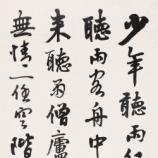 少年聽雨
聽雨客舟中
來聽雨僧廬
無情一任空階